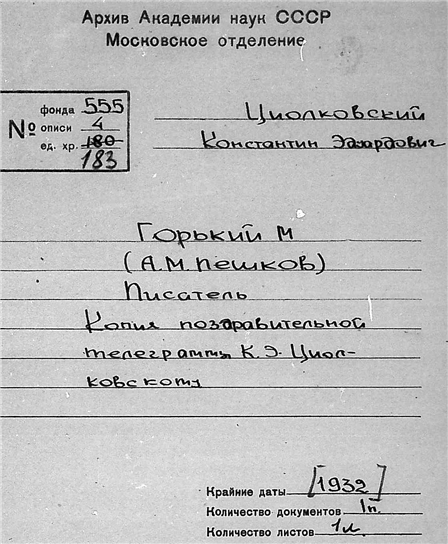 Архив Академии наук СССР
Московское отделение
№
фонда 555
описи 4
ед. хр. 180
183
Циолковский
Константин Эдуардович
Горький М
(А.М. Пешков)
Писатель
Копия поздравительной
телеграммы К.Э. Циол-
ковскому
Крайние даты [1932]
Количество документов 1п.
Количество листов 1л.